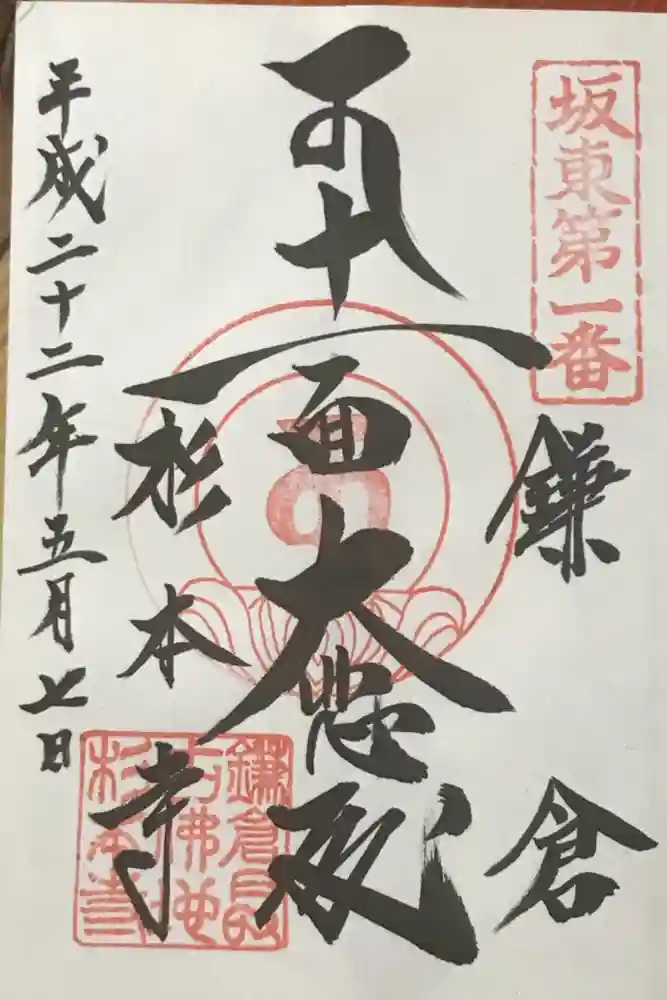 坂東第一番
鎌倉
十一面大悲殿
杉本寺
鎌倉最
古佛地
杉本寺
平成二十二年五月七日